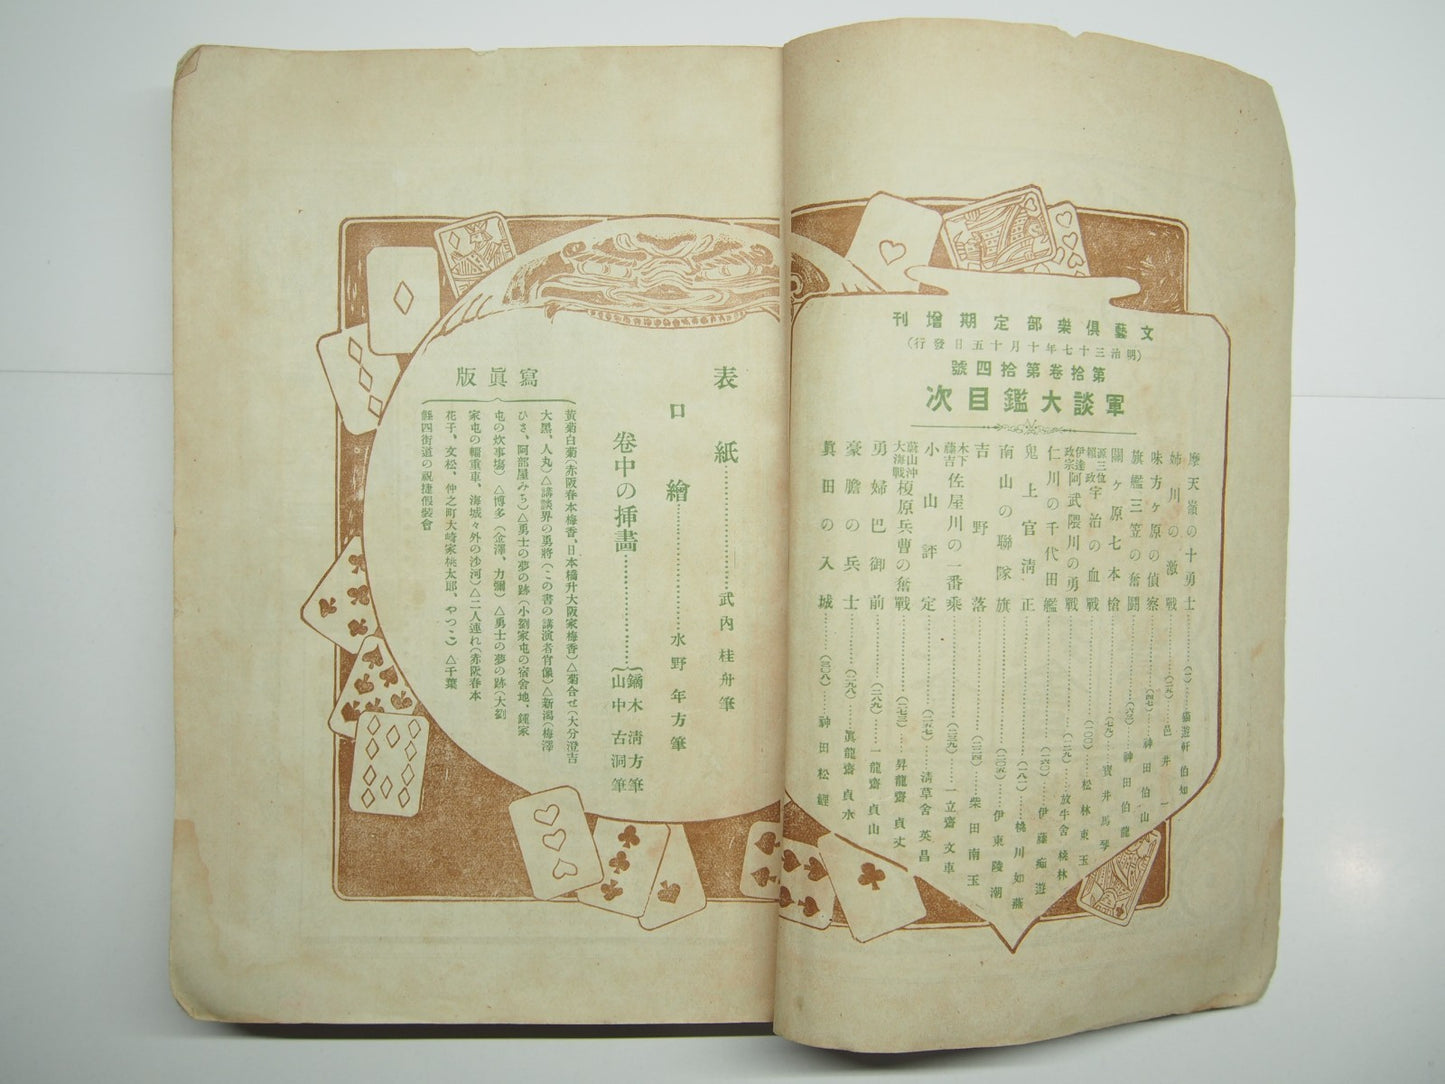 文藝倶樂部定期増刊
(明治三十七年十月十五日發行)
第拾卷第拾四號
軍談大鑑目次
摩天嶺の十勇士………(一)…猫遊軒伯知
姉川の激戰………(二五)…邑井一
味方ヶ原の偵察………(四七)…神田伯山
旗艦三笠の奮闘………(六三)…神田伯龍
關ヶ原七本槍………(七九)…寶井馬琴
源三位頼政宇治の血戰………(一〇〇)…松林東玉
伊達政宗阿武隈川の勇戰………(一二九)…放牛舍桃林
仁川の千代田艦………(一四〇)…伊藤痴遊
鬼上官清正………(一八一)…桃川如燕
南山の聯隊旗………(二〇五)…伊東陵潮
吉野落………(二二四)…柴田南玉
木下藤吉佐屋川の一番乘………(二三九)…一立齋文車
小山評定………(二五七)…清草舍英昌
蔚山沖大海戰榎原兵曹の奮戰………(二七三)…昇龍齋貞丈
勇婦巴御前………(二八九)…一龍齋貞山
豪膽の兵士………(二九八)…眞龍齋貞水
眞田の入城………(三〇八)…神田松鯉
表紙………武内桂舟筆
口繪………水野年方筆
卷中の挿畵………鏑木清方筆
山中古洞筆
寫眞版
黄菊白菊(赤阪春本梅香、日本橋升大阪家梅香)△菊合せ(大分澄吉
大黑、人丸)△講談界の勇將(この書の講演者肖像)△新潟(梅澤
ひさ、阿部屋みち)△勇士の夢の跡(小劉家屯の宿舍地、鍾家
屯の炊事塲)△博多(金澤、力彌)△勇士の夢の跡(大劉
家屯の輜重車、海城々外の沙河)△二人連れ(赤阪春本
花子、文松、仲之町大崎家桃太郎、やつこ)△千葉
縣四街道の祝捷假裝會